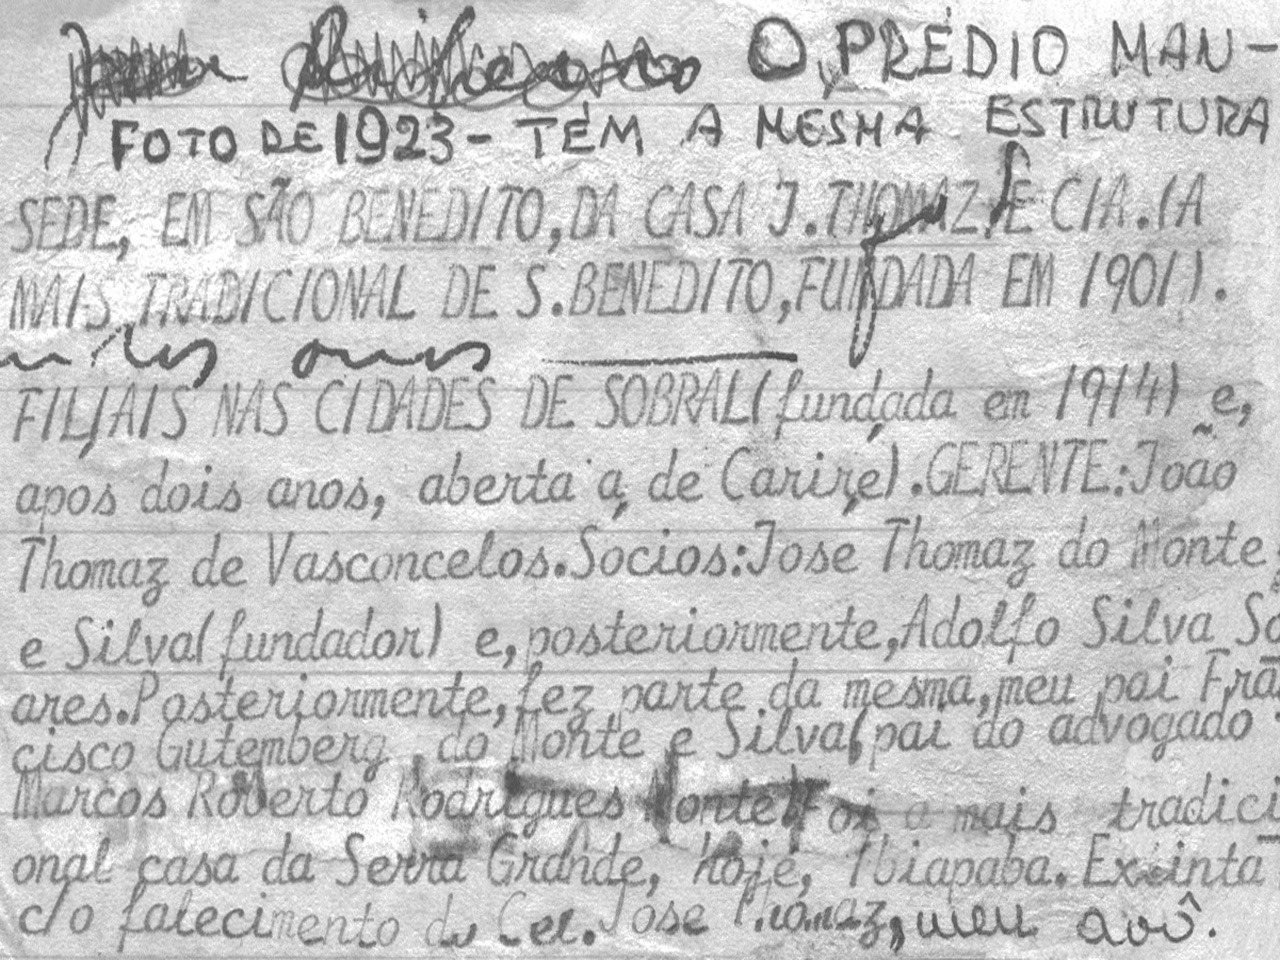 O PRÉDIO MAN-
FOTO DE 1923 - TÉM A MESMA ESTRUTURA
SEDE, EM SÃO BENEDITO, DA CASA J. THOMAZ E CIA. (A
MAIS TRADICIONAL DE S. BENEDITO, FUNDADA EM 1901).
FILIAIS NAS CIDADES DE SOBRAL (fundada em 1914) e,
apos dois anos, aberta a de Carire). GERENTE: João
Thomaz de Vasconcelos. Socios: Jose Thomaz do Monte
e Silva (fundador) e, posteriormente, Adolfo Silva So
ares. Posteriormente, fez parte da mesma, meu pai Frã
cisco Gutemberg do Monte e Silva (pai do advogado
Marcos Roberto Rodrigues Monte) Foi a mais tradici
onal casa da Serra Grande, hoje, Ibiapaba. Extinta
c/o falecimento do Cel. Jose Thomaz, meu avô.